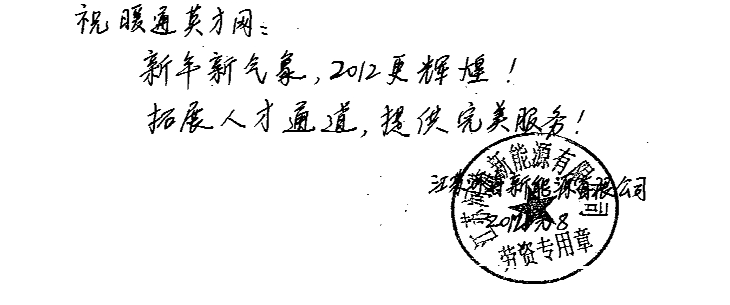 祝暖通英才网:
新年新气象,2012更辉煌!
拓展人才通道,提供完美服务!
江苏 新能源有限公司
江苏 新能源有限公司
劳资专用章